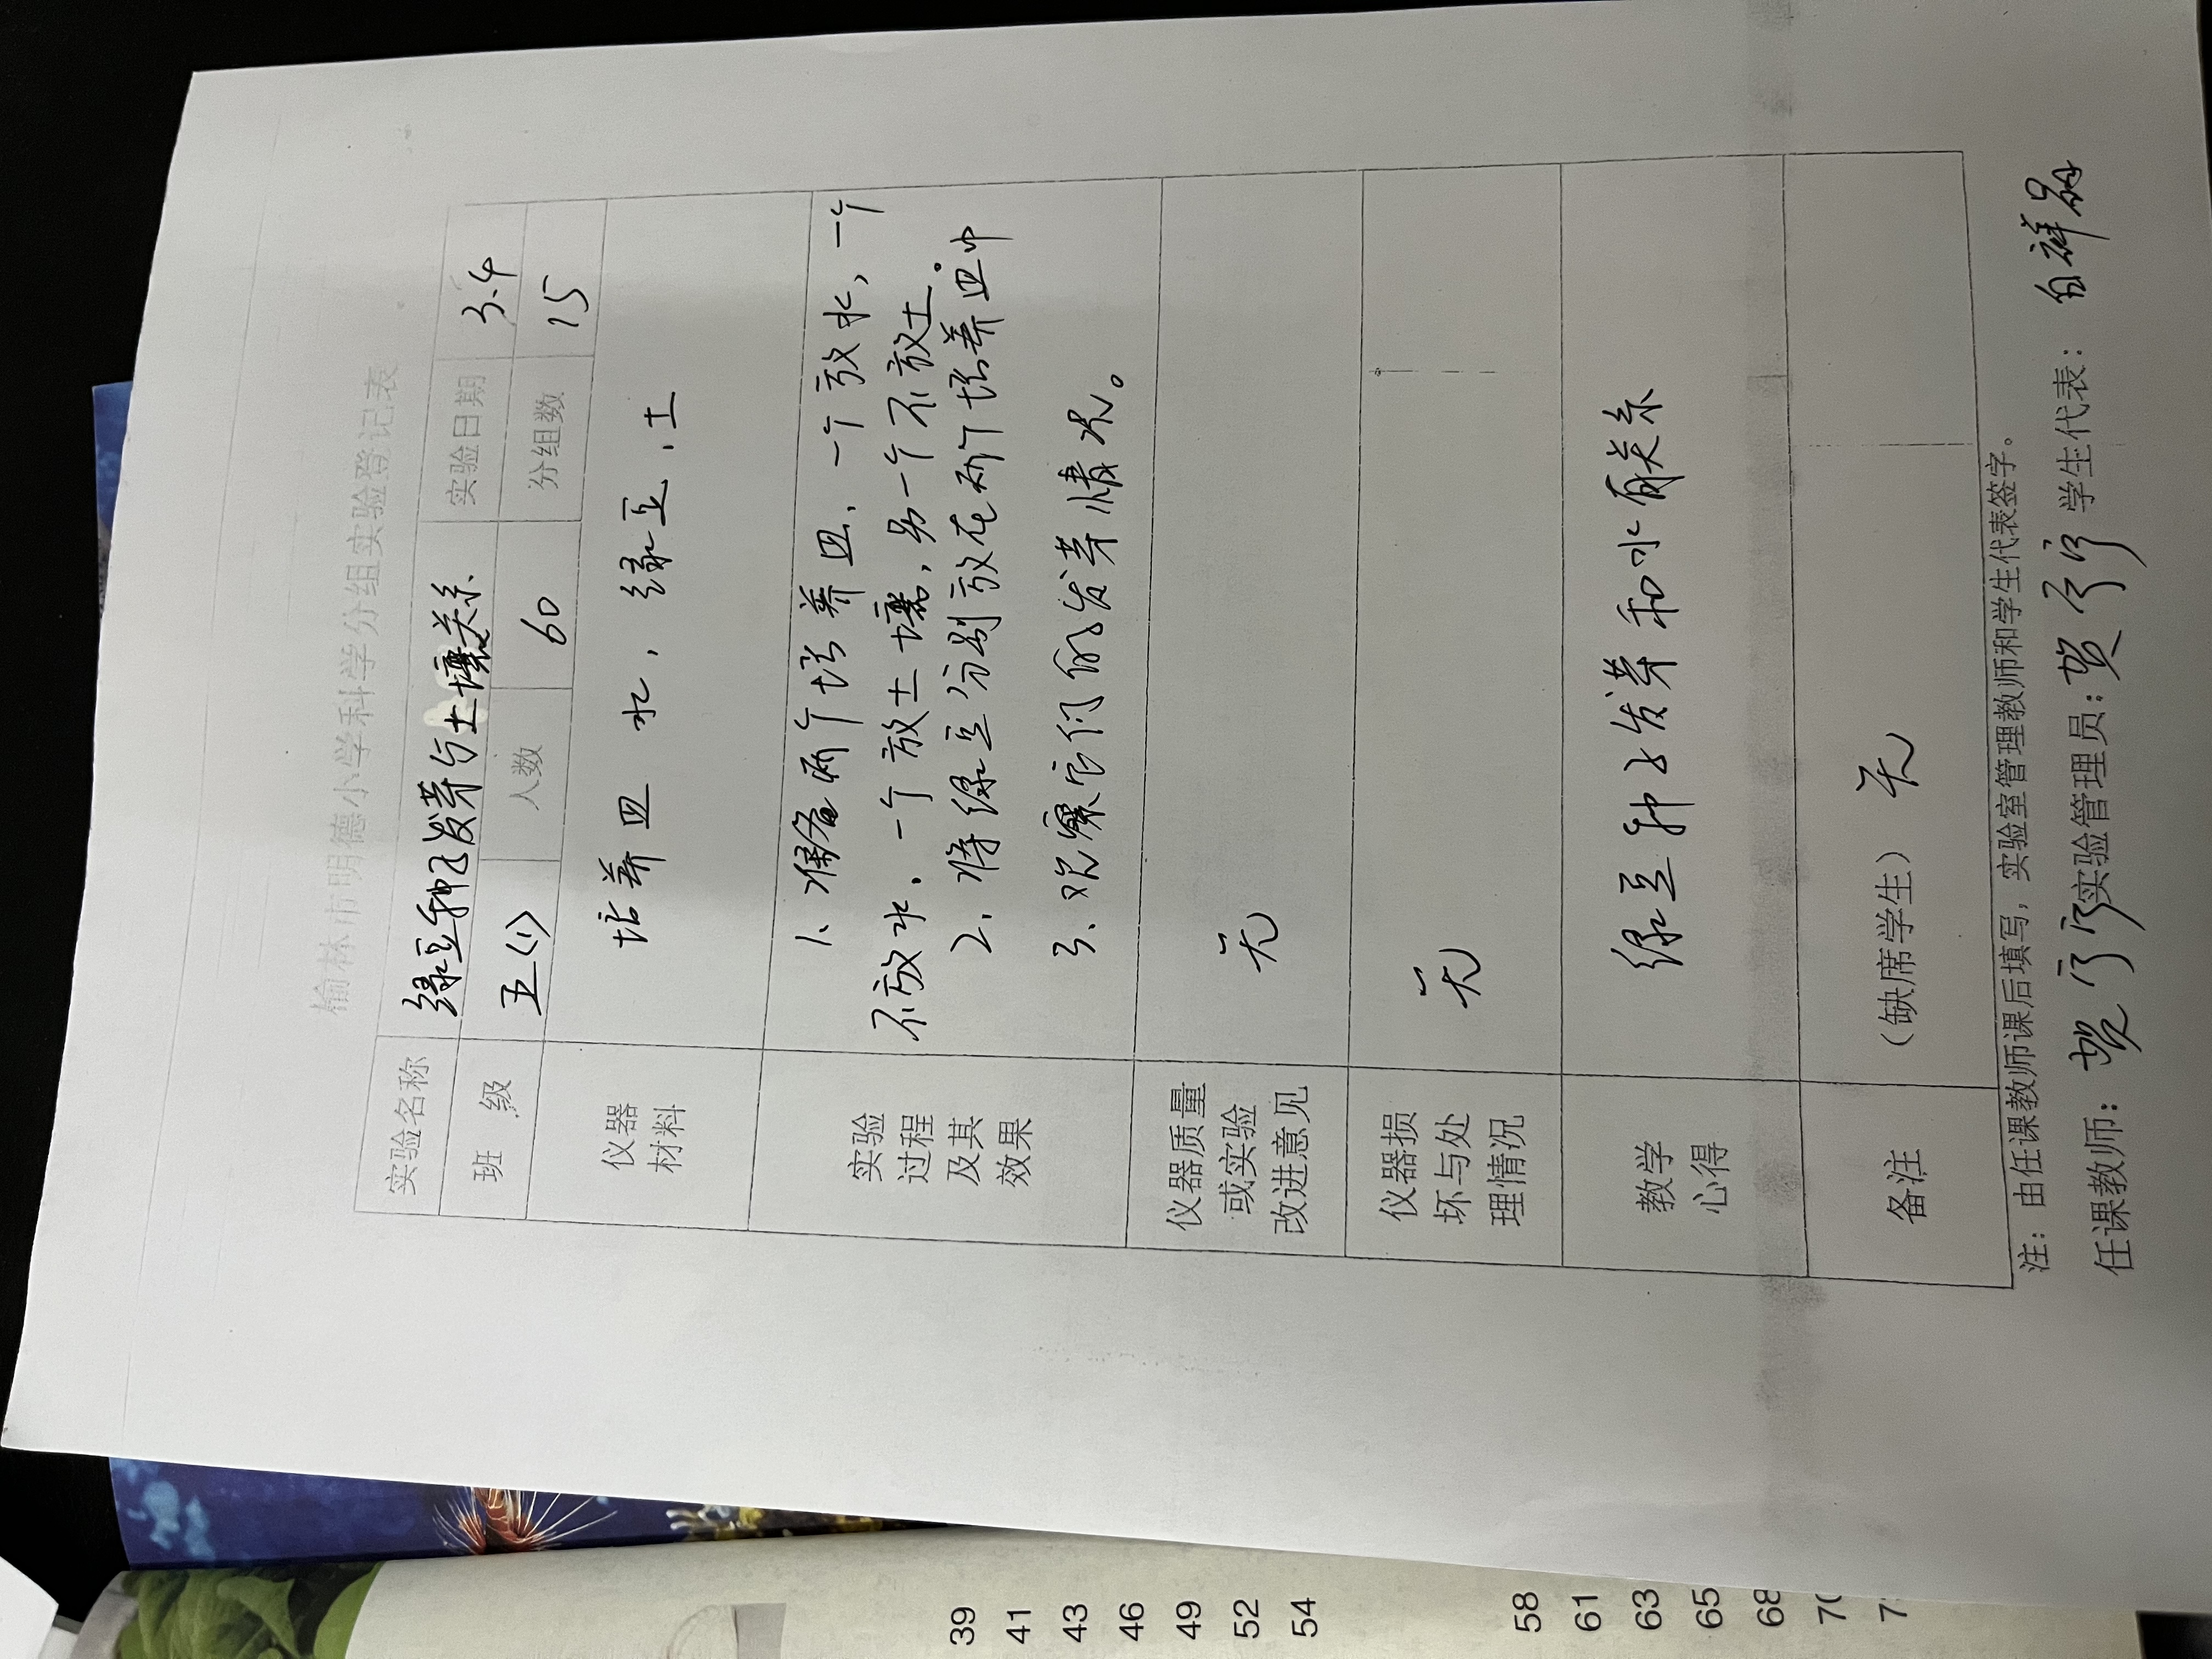 榆林市明德小学科学分组实验登记表
实验名称 绿豆种子发芽与土壤关系 实验日期 3.4
班 级 五(1) 人数 60 分组数 15
仪器
材料
培养皿 水, 绿豆, 土
实验
过程
及其
效果
1、准备两个培养皿, 一个放水, 一个
不放水, 一个放土壤, 另一个不放土。
2、将绿豆分别放在两个培养皿中
3、观察它们的发芽情况。
仪器质量
或实验
改进意见
无
仪器损
坏与处
理情况
无
教学
心得
绿豆种子发芽和水有关系
备注
(缺席学生) 无
注: 由任课教师课后填写, 实验室管理教师和学生代表签字。
任课教师: 贺 实验管理员: 贺 学生代表: 白祥
39
41
43
46
49
52
54
58
61
63
65
68